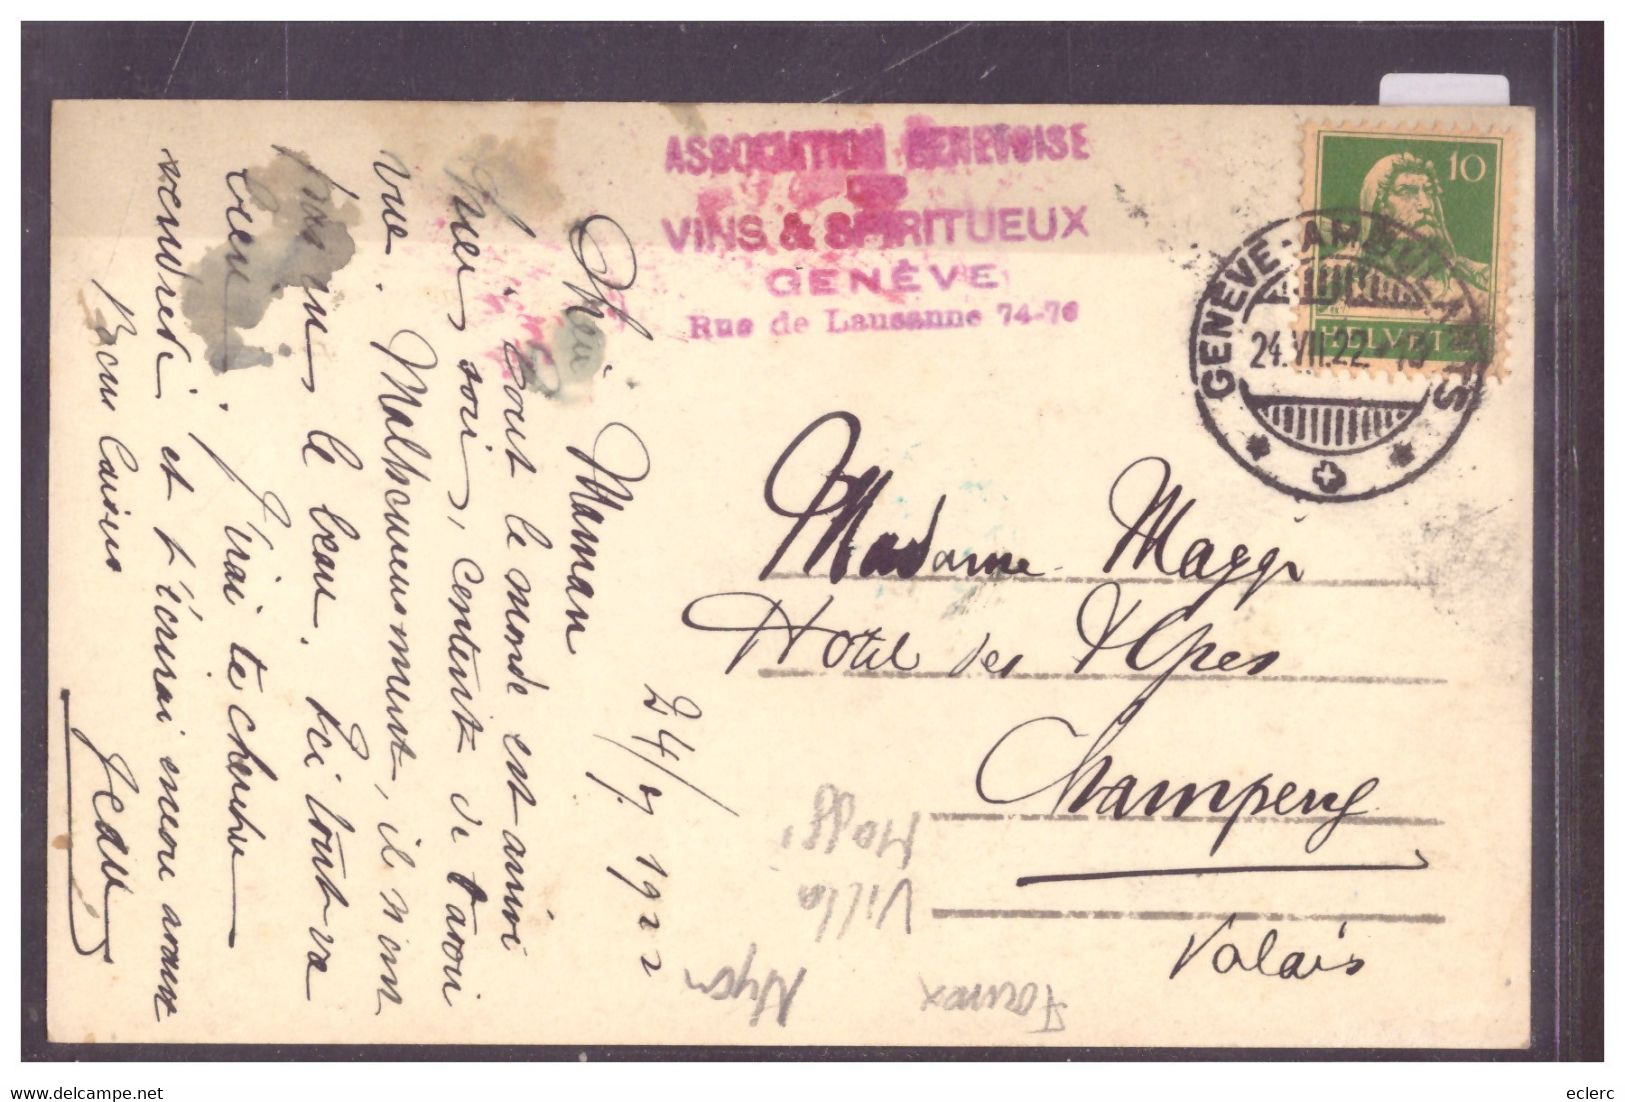 ASSOCIATION GENEVOISE
VINS & SPIRITUEUX
GENÈVE
Rue de Lausanne 74-76
10
HELVETIA
GENÈVE-AMBULANTS
24.VII.22
24/7 1922
Chère Maman
tout le monde est arrivé
hier soir, content de t'avoir
vue. Malheureusement, il n'en
le beau. Ici tout va
bien. J'irai te chercher
vendredi et t'écrirai encore avant
Bons baisers
Jean
Madame Maggi
Hotel des Alpes
Champery
Valais
Maggi
Villa
Nyon
eclerc